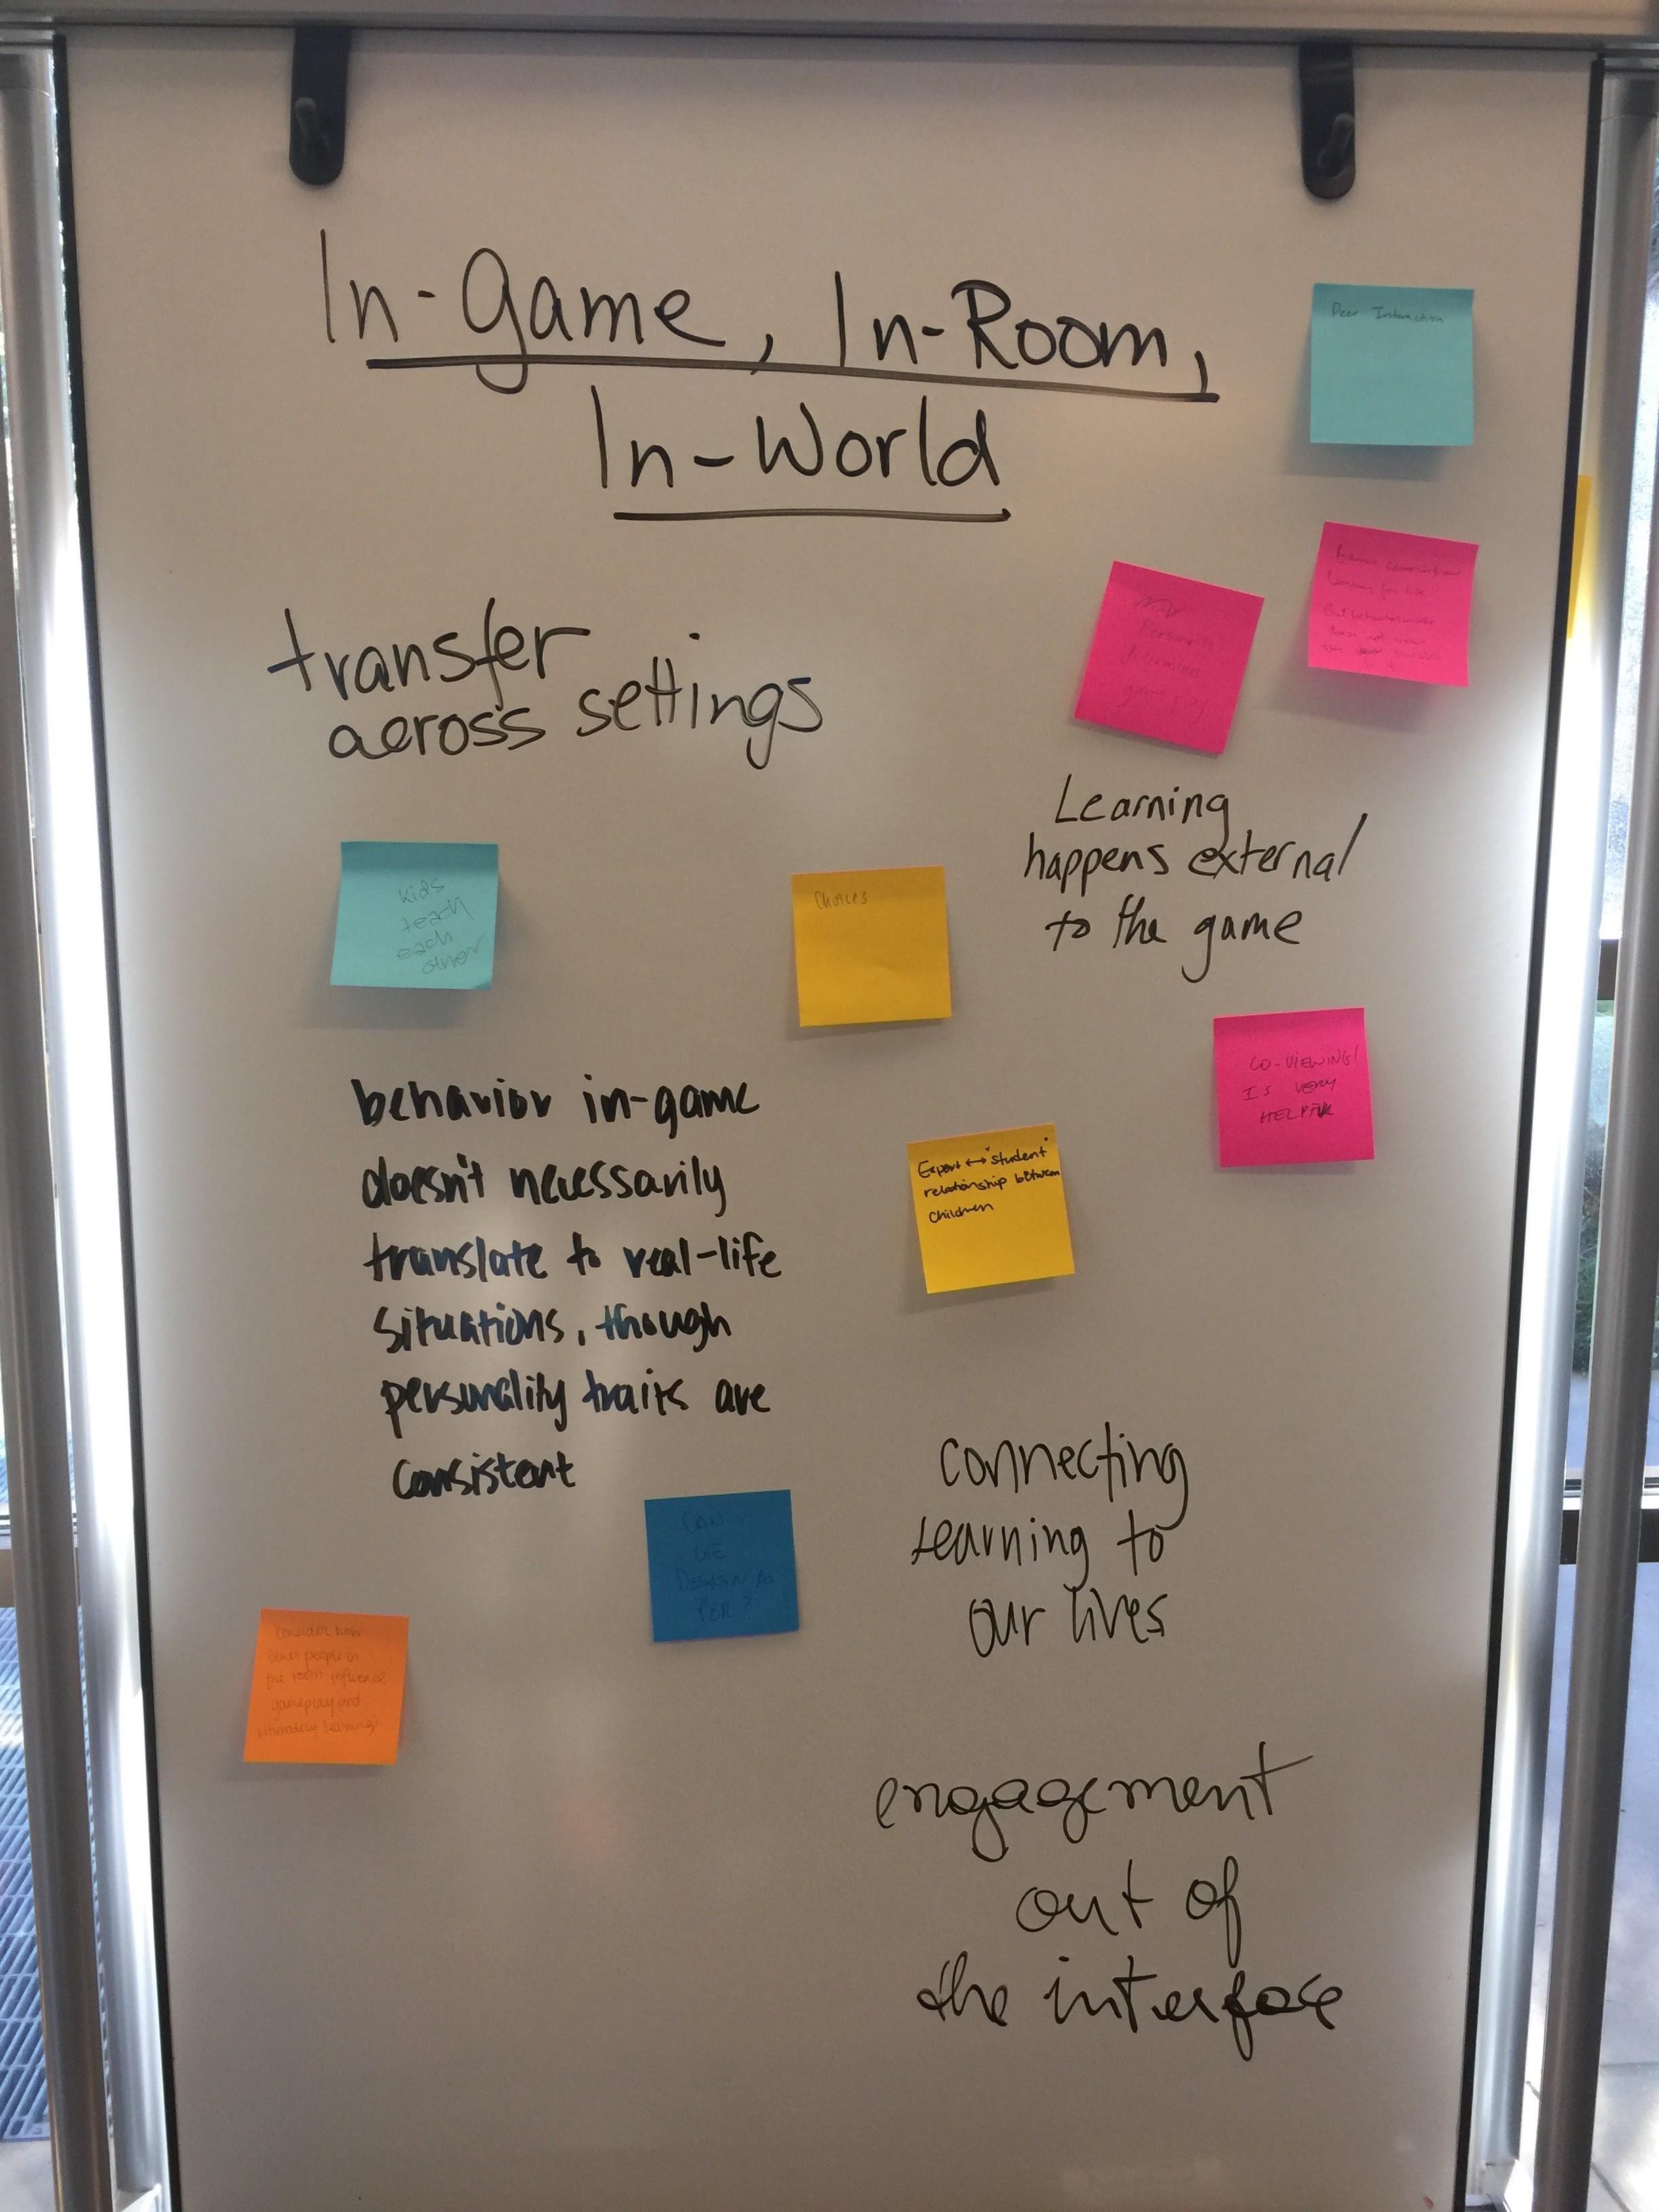 In-Game, In-Room,
In-World
Peer Interaction
transfer
across settings
Personality
determines
game play
learning for life
does not mean
Learning
happens external
to the game
kids
teach
each
other
Choices
CO-VIEWING
IS VERY
HELPFUL
behavior in-game
doesn't necessarily
translate to real-life
situations, though
personality traits are
consistent
Expert ↔ "student"
relationship between
children
connecting
learning to
our lives
CAN
WE
DESIGN
FOR?
Consider how
other people in
the room influence
gameplay (and
ultimately learning)
engagement
out of
the interface